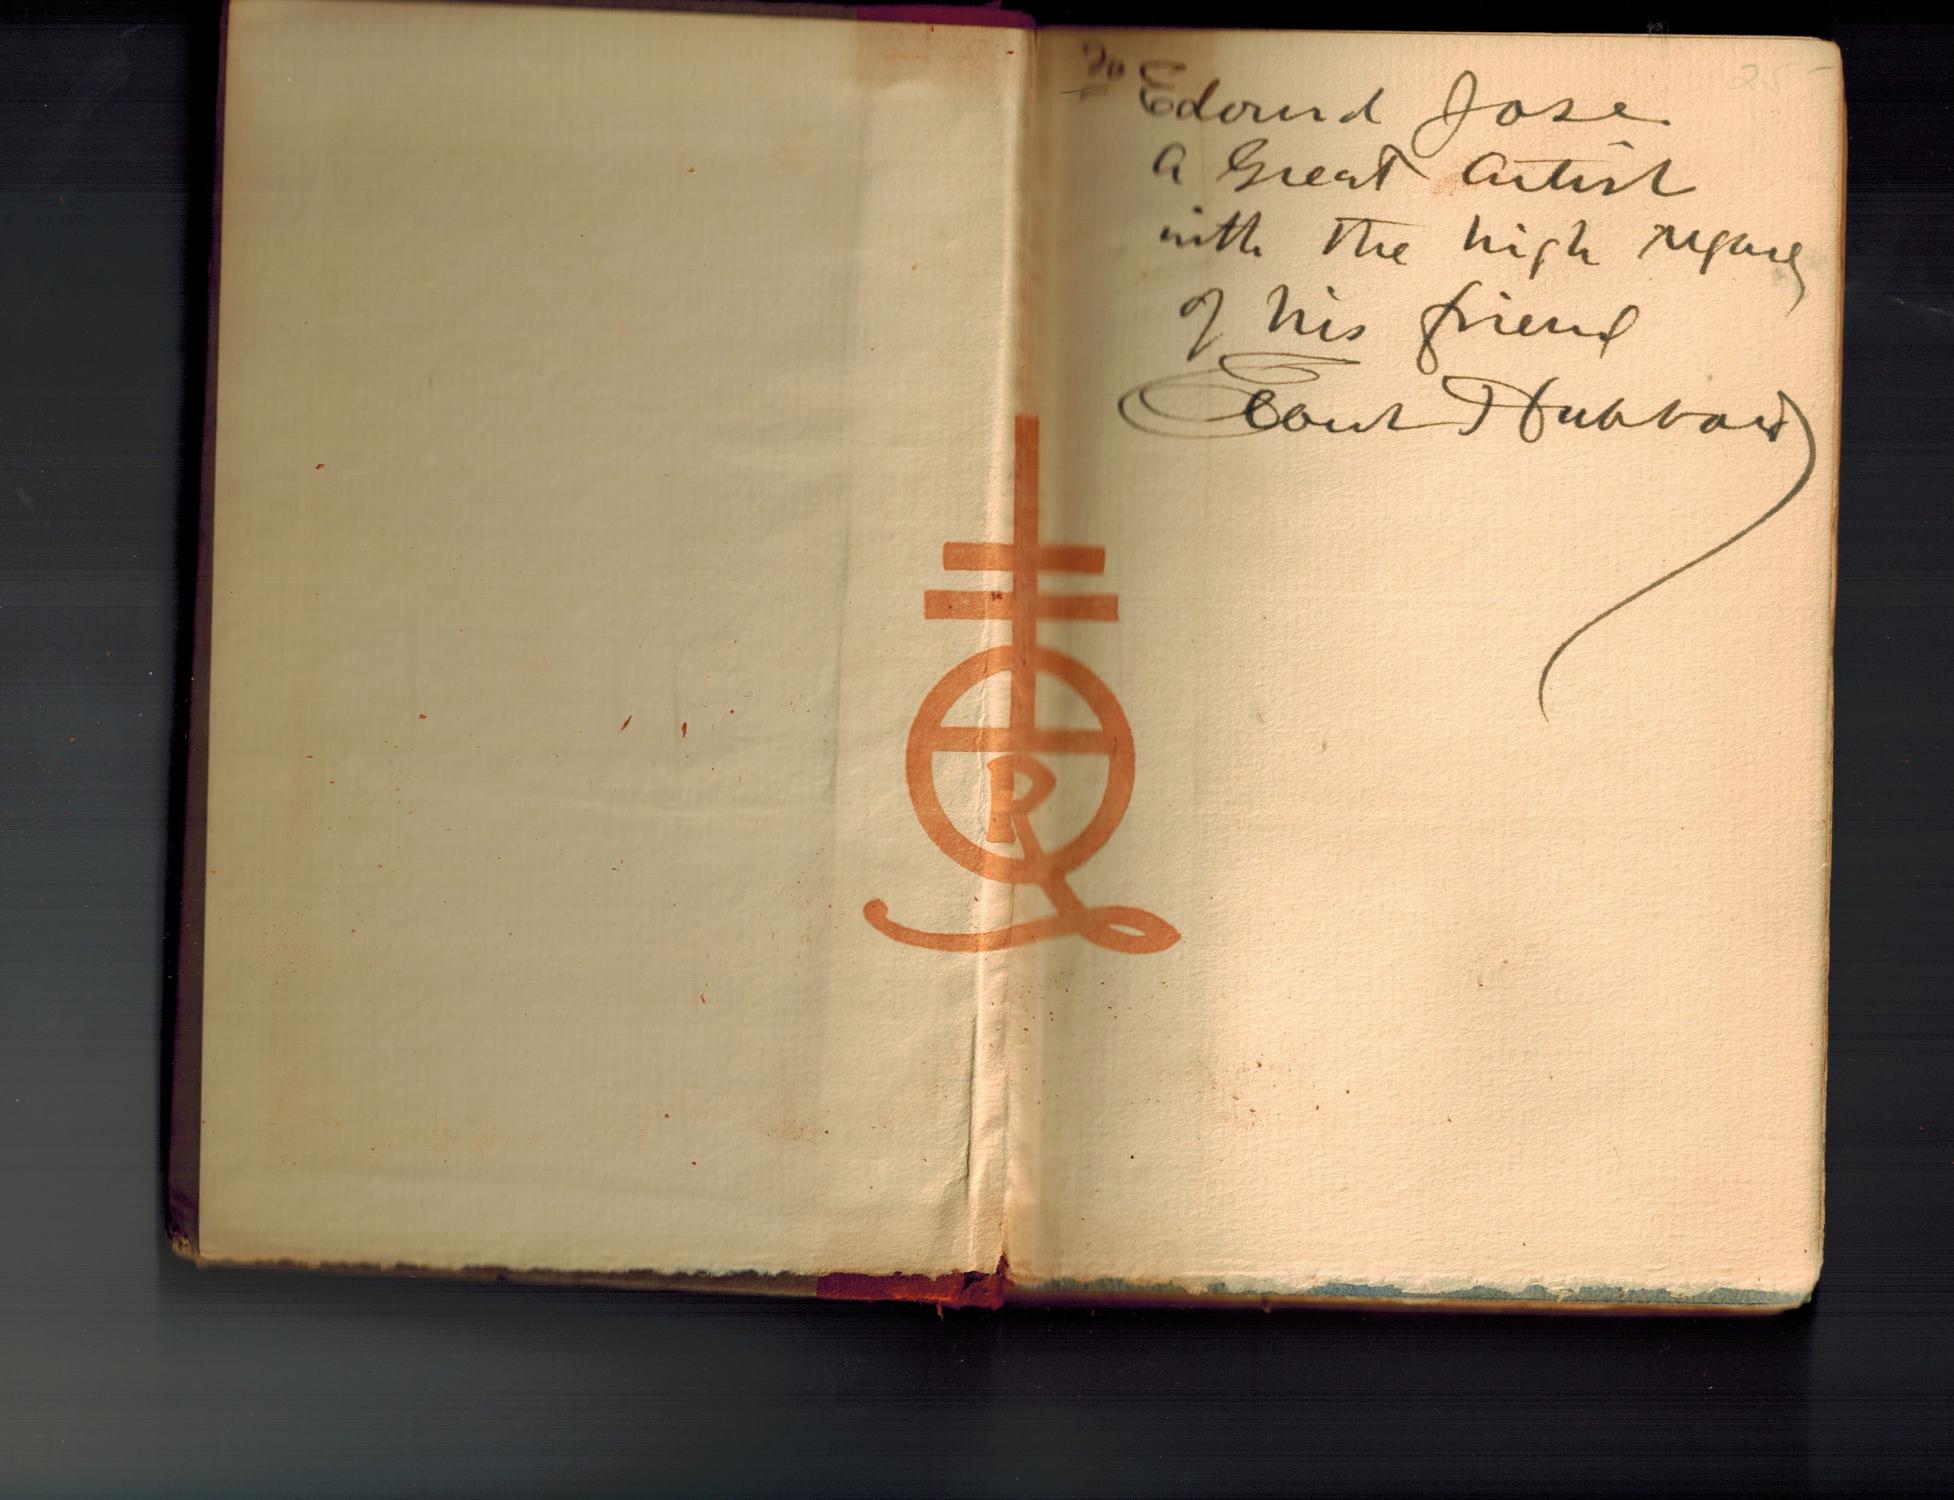 To Edouard Jose
A Great Artist
with the high regard
of his friend
Elbert Hubbard
25
R